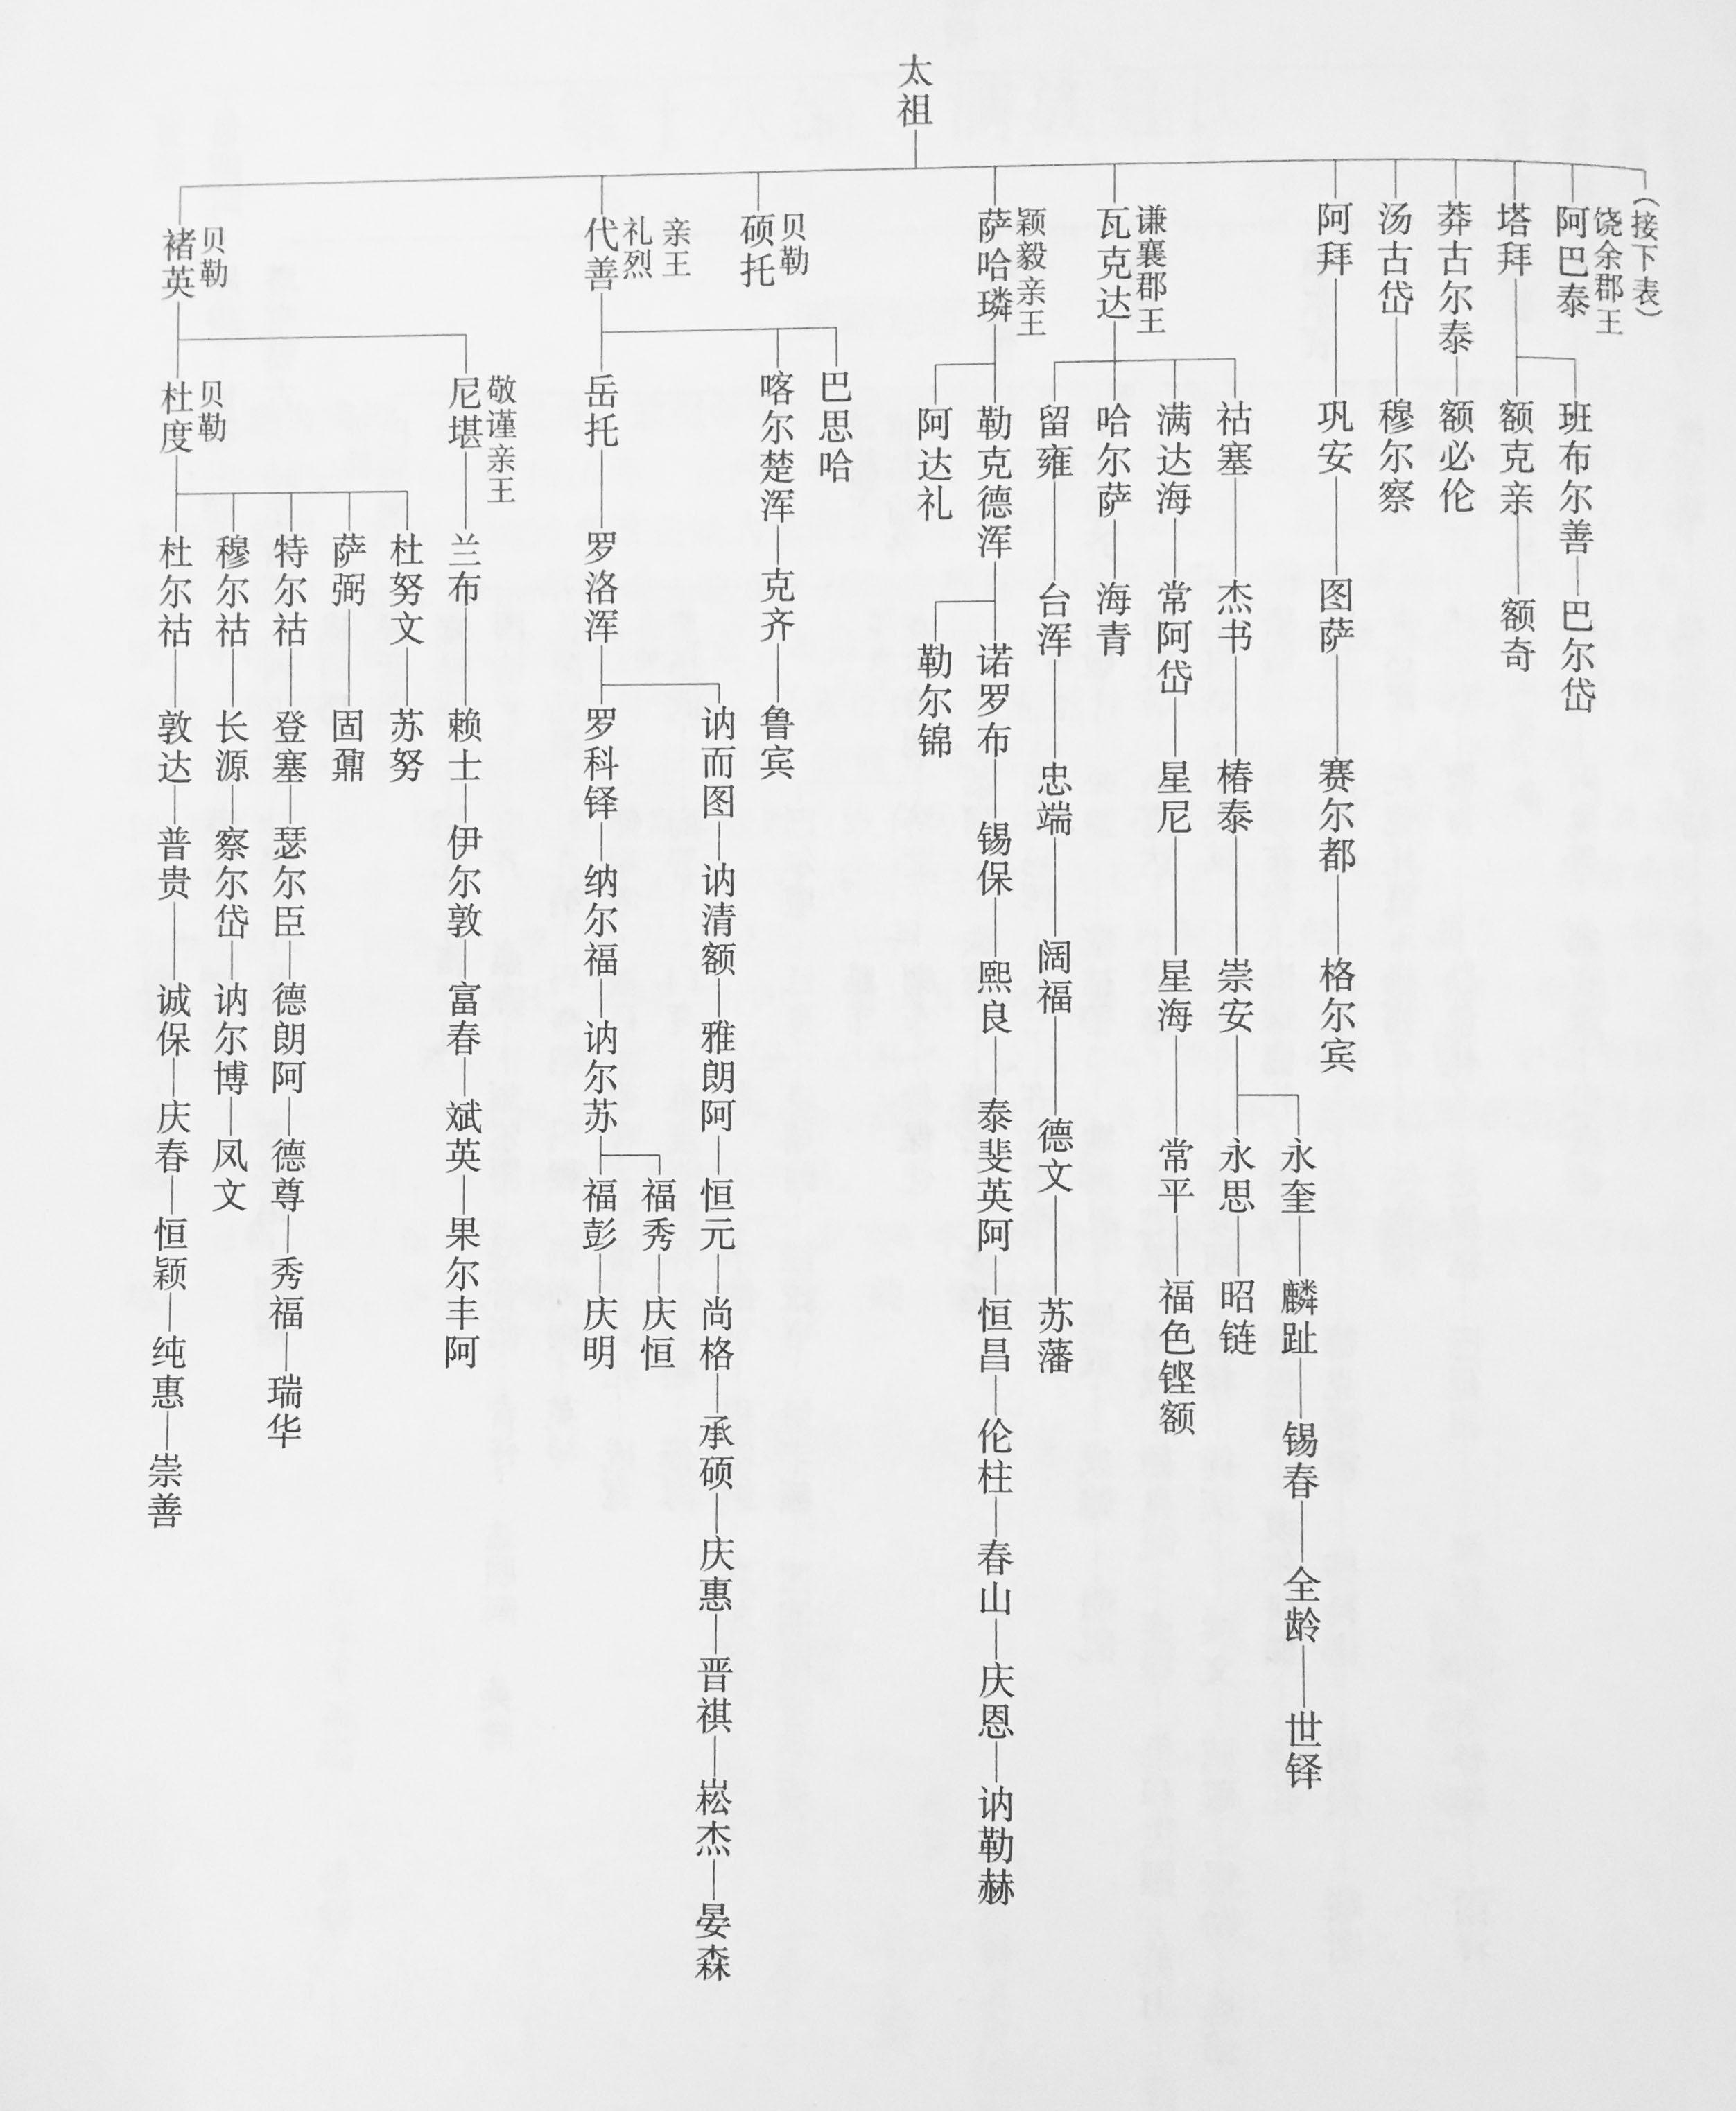 太祖
褚英
贝勒
代善
礼烈
亲王
硕托
贝勒
萨哈璘
颖毅亲王
瓦克达
谦襄郡王
阿拜
汤古岱
莽古尔泰
塔拜
阿巴泰
饶余郡王
（接下表）
杜度
贝勒
尼堪
敬谨亲王
岳托
喀尔楚浑
巴思哈
阿达礼
勒克德浑
留雍
哈尔萨
满达海
祜塞
巩安
穆尔察
额必伦
额克亲
班布尔善
杜尔祜
穆尔祜
特尔祜
萨弼
杜努文
兰布
罗洛浑
克齐
勒尔锦
诺罗布
台浑
海青
常阿岱
杰书
图萨
额奇
巴尔岱
敦达
长源
登塞
固鼐
苏努
赖士
罗科铎
讷而图
鲁宾
锡保
忠端
星尼
椿泰
赛尔都
普贵
察尔岱
瑟尔臣
伊尔敦
纳尔福
讷清额
熙良
阔福
星海
崇安
格尔宾
诚保
讷尔博
德朗阿
富春
讷尔苏
雅朗阿
泰斐英阿
德文
常平
永思
永奎
庆春
凤文
德尊
斌英
福彭
福秀
恒元
恒昌
苏藩
福色铿额
昭链
麟趾
恒颖
秀福
果尔丰阿
庆明
庆恒
尚格
伦柱
锡春
纯惠
瑞华
承硕
春山
全龄
崇善
庆惠
庆恩
世铎
晋祺
讷勒赫
崧杰
晏森